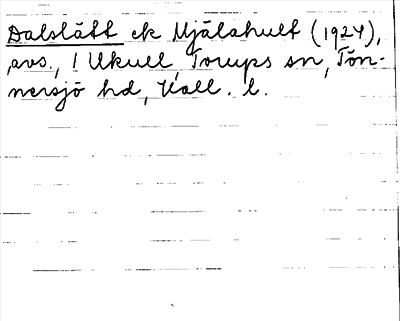 Dalslätt ck Mjälahult (1924),
avs., 1 Ukull, Torups sn, Tön-
nersjö hd, Hall. l.